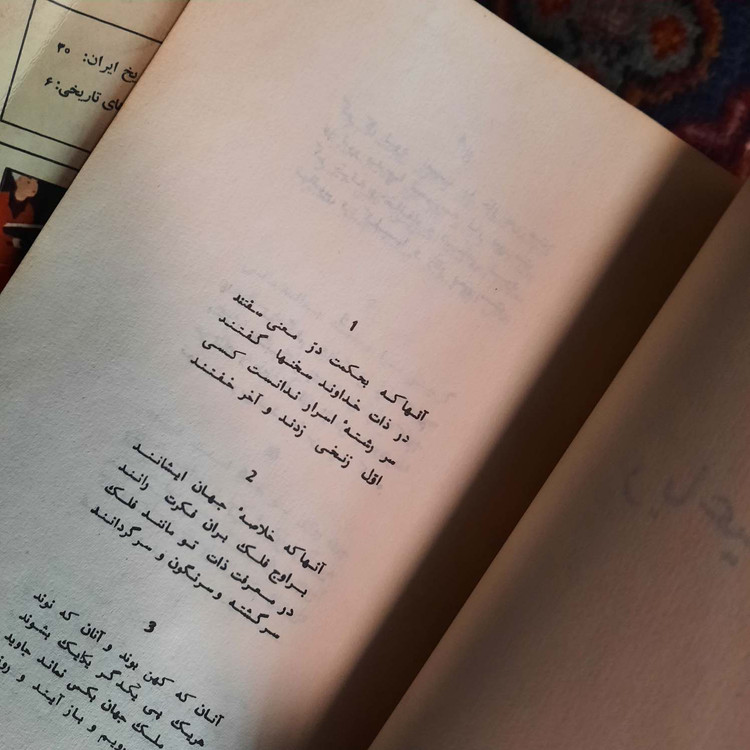 یخ ایران: ۳۰
های تاریخی: ۶
1
آنها که بحکمت درّ معنی سفتند
در ذات خداوند سخنها گفتند
سر رشتهٔ اسرار ندانست کسی
اوّل زنخی زدند و آخر خفتند
2
آنها که خلاصهٔ جهان ایشانند
بر اوج فلک بران فکرت رانند
در معرفت ذات تو مانند فلک
سرگشته و سرنگون و سرگردانند
3
آنان که کهن بوند و آنان که نوند
هریک پی یکدگر یکایک بشوند
ملک جهان بکس نماند جاوید
ویم و باز آیند و رو